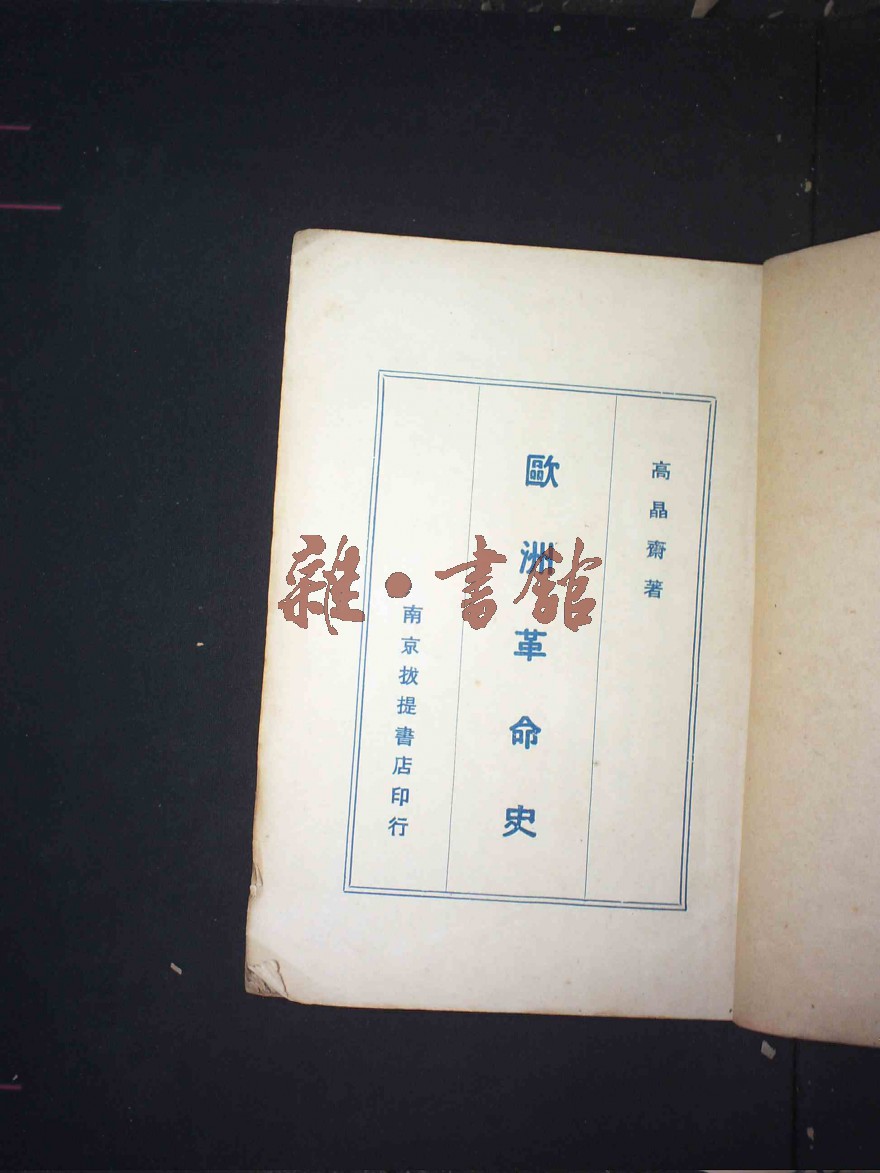 高晶齋著
歐洲革命史
南京拔提書店印行
雜·書館